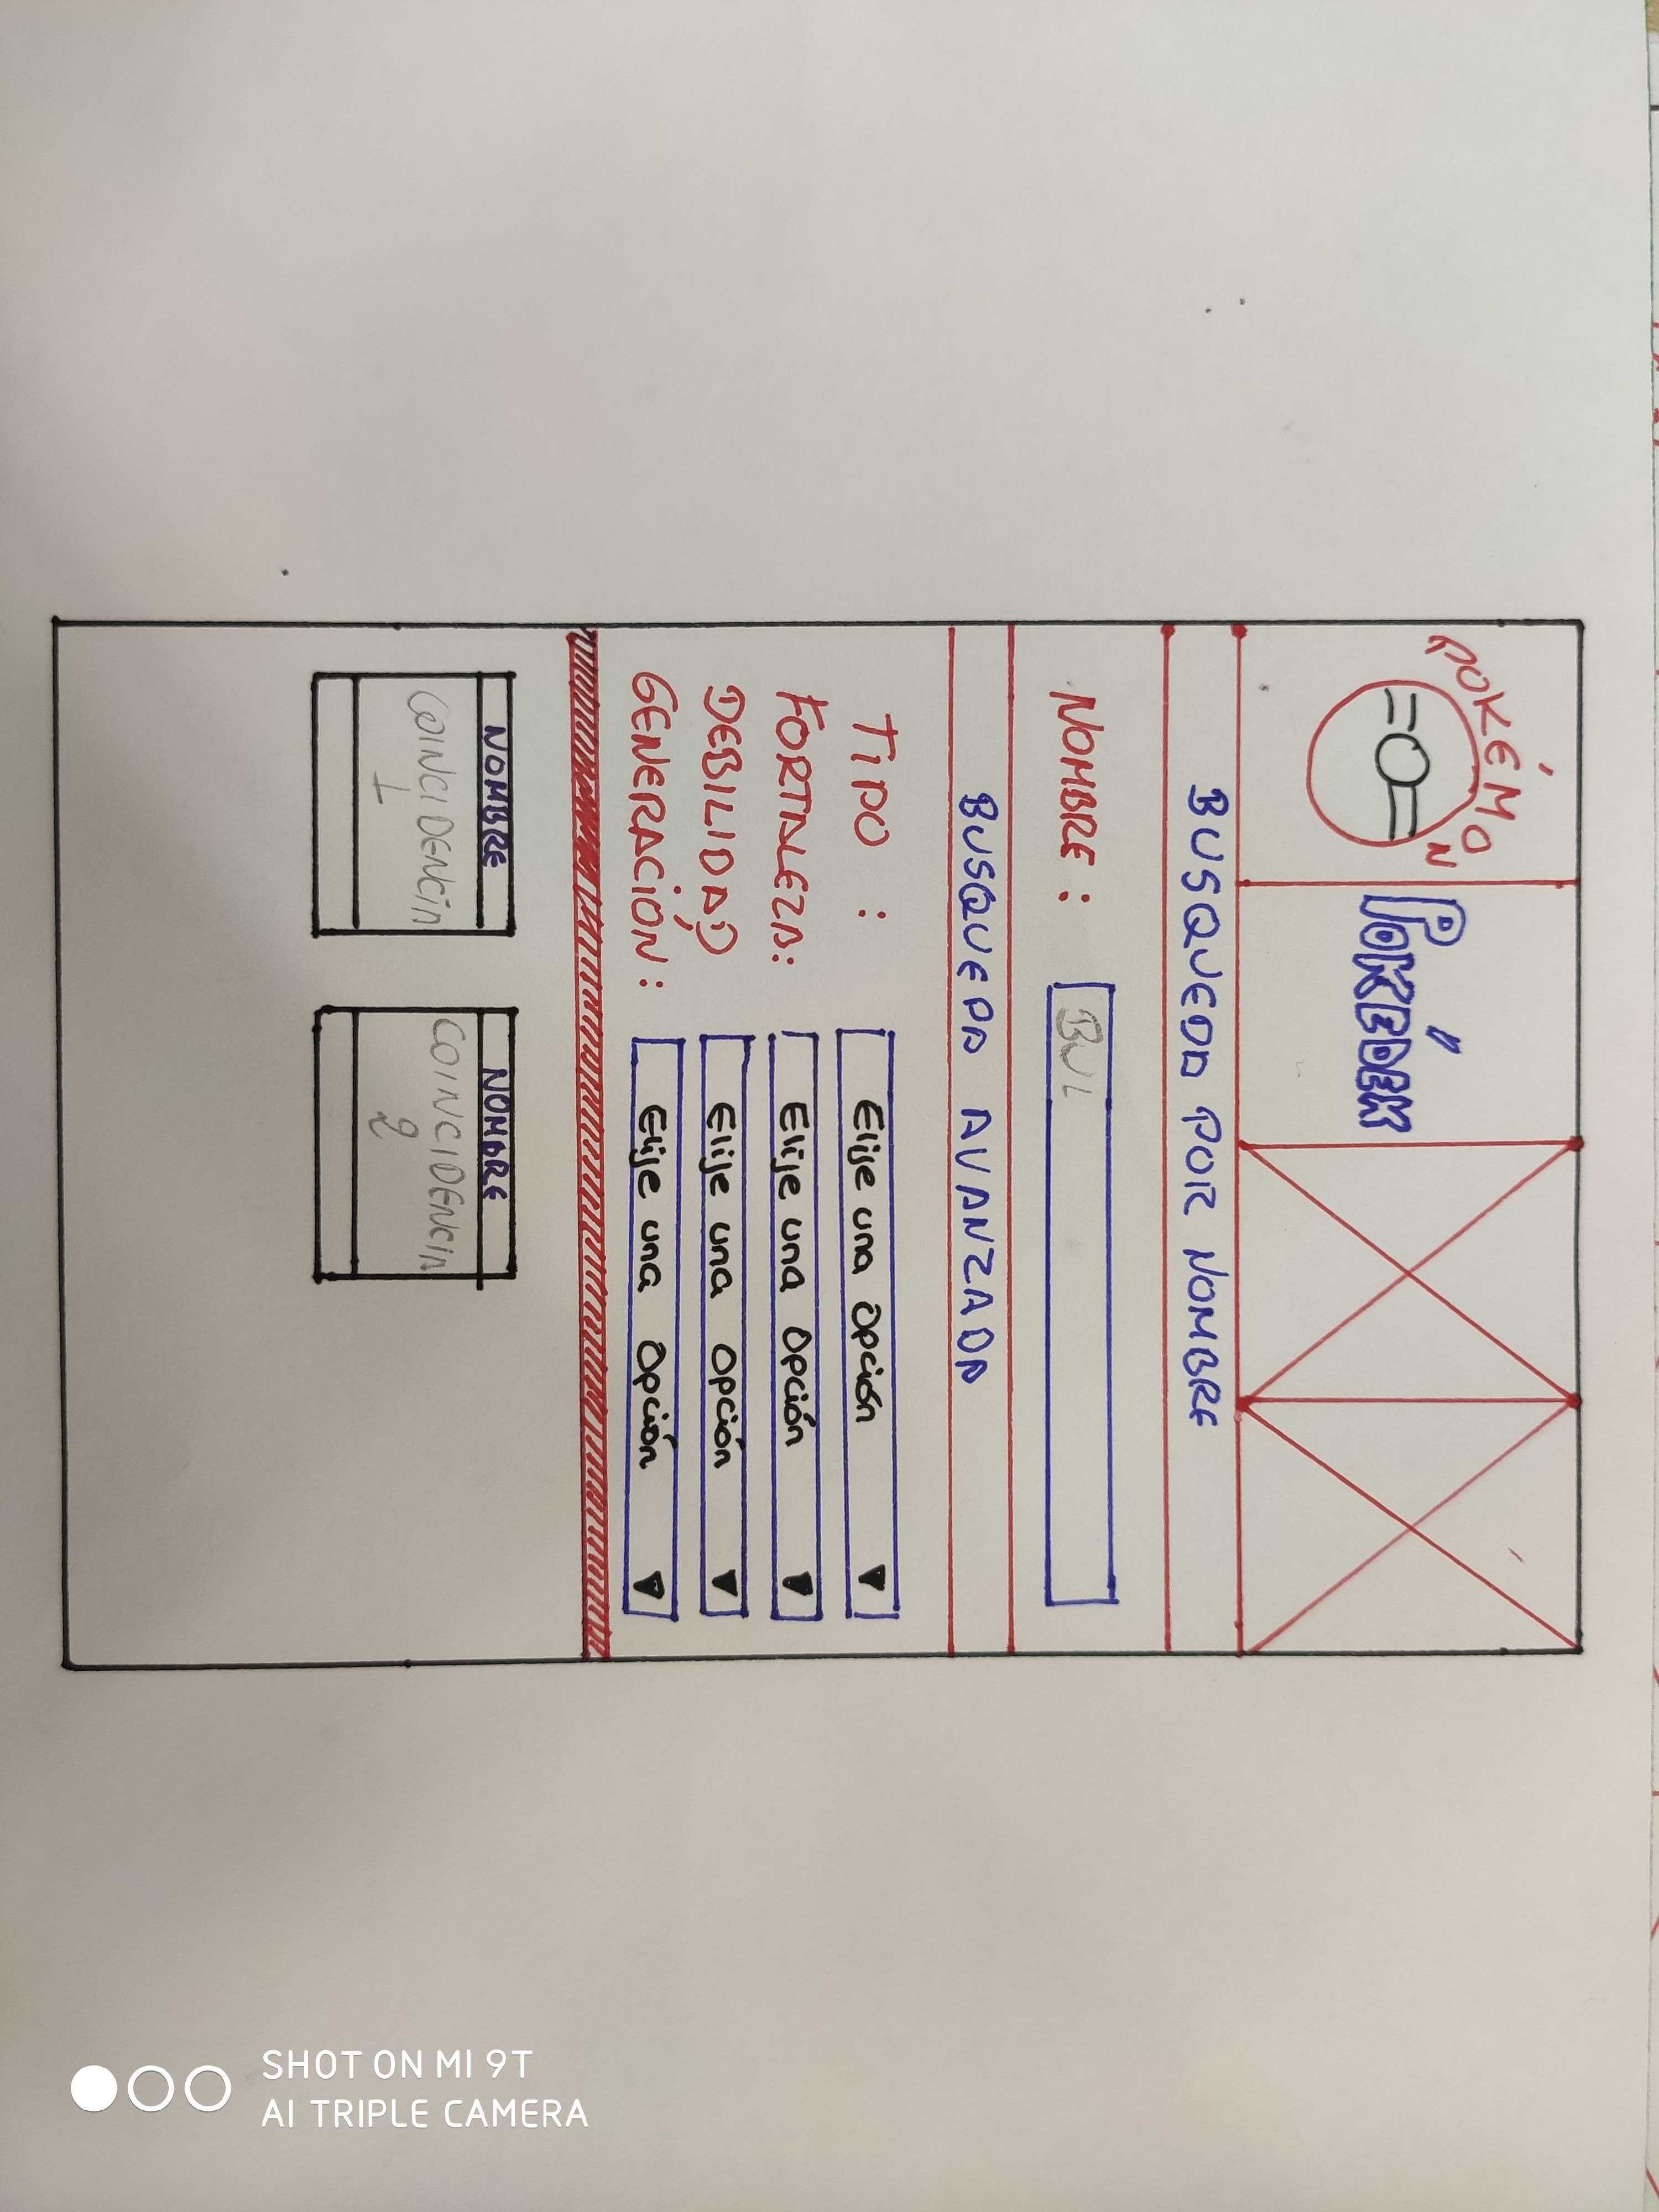 POKÉMON
POKÉDEX
BUSQUEDA POR NOMBRE
NOMBRE : BUL
BUSQUEDA AVANZADA
TIPO : Elije una Opción
FORTALEZA: Elije una Opción
DEBILIDAD Elije una Opción
GENERACIÓN: Elije una Opción
NOMBRE NOMBRE
COINCIDENCIA COINCIDENCIA
1 2
SHOT ON MI 9T
AI TRIPLE CAMERA